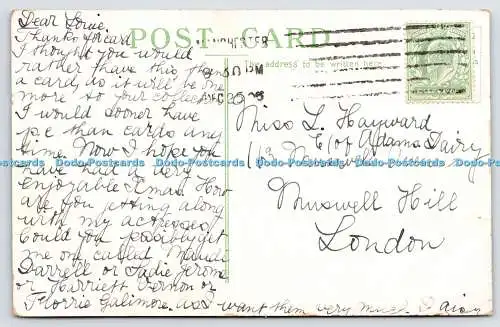 Dear Louie,
Thanks for card
I thought you would
rather have this than
a card, as it will be one
more to your collec
I would sooner have
p.c than cards any
time. Now I hope you
have had a very
enjoyable Xmas. How
are you getting along
with my actresses
Could you possibly get
me one called Maude
Darrell or Sadie Jerome
or Harriett Vernon or
Florrie Galimore, as I want them very much
POST CARD
The address to be written here.
DE 25
Miss L. Hayward
C/o Adams Dairy
Muswell Hill
London
Dodo-Postcards Dodo-Postcards Dodo-Postcards Dodo-Postcards Dodo-Postcards